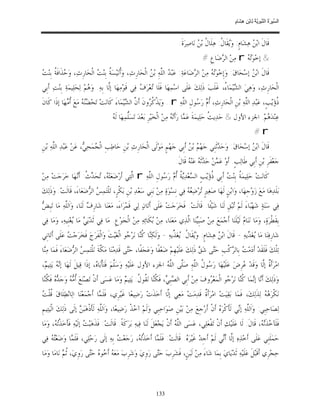 السّيرَةُ النّبَوِيّةُ لابْنِ هِشَامٍ
قَالَ ابْنُ هِشَامٍ: وَيُقَالُ: هِلَالُ بْنُ نَاصِرَةَ
& إخْوَتُهُ مِنْ الرّضَاعِ #
قَالَ ابْنُ إسْحَاقَ: وَإِخْوَتُهُ مِنْ الرّضَاعَةِ عَبْدُ اللّهِ بْنُ الْحَارِثِ، وَأُنَيْسَةُ بِنْتُ الْحَارِثِ، وَحُذَافَةُ بِنْتُ
الْحَارِثِ، وَهِيَ الشّيْمَاءُ، غَلَبَ ذَلِكَ عَلَى اسْمِهَا فَلَا تُعْرَفُ فِي قَوْمِهَا إلّا بِهِ. وَهُمْ لِحَلِيمَةَ بِنْتِ أَبِي
ذُؤَيْبٍ، عَبْدِ اللّهِ بْنِ الْحَارِثِ، أُمّ رَسُولِ اللّهِ وَيَذْكُرُونَ أَنّ الشّيْمَاءَ كَانَتْ تَحْضُنُهُ مَعَ أُمّهَا إذَا كَانَ
عِنْدَهُمْ. الجزء الأول & حَدِيثُ حَلِيمَةَ عَمّا رَأَتْهُ مِنْ الْخَيْرِ بَعْدَ تَسَلّمِهَا لَهُ
#
قَالَ ابْنُ إسْحَاقَ: وَحَدّثَنِي جَهْمُ بْنُ أَبِي جَهْمٍ مَوْلَى الْحَارِثِ بْنِ حَاطِبٍ الْجُمَحِيّ، عَنْ عَبْدِ اللّهِ بْنِ
جَعْفَرِ بْنِ أَبِي طَالِبٍ. أَوْ عَمّنْ حَدّثَهُ عَنْهُ قَالَ
كَانَتْ حَلِيمَةُ بِنْتُ أَبِي ذُؤَيْبٍ السّعْدِيّةُ أُمّ رَسُولِ اللّهِ الّتِي أَرْضَعَتْهُ، تُحَدّثُ: أَنّهَا خَرَجَتْ مِنْ
بَلَدِهَا مَعَ زَوْجِهَا، وَابْنٍ لَهَا صَغِيرٍ تُرْضِعُهُ فِي نِسْوَةٍ مِنْ بَنِي سَعْدِ بْنِ بَكْرٍ، تَلْتَمِسُ الرّضَعَاءَ، قَالَتْ: وَذَلِكَ
فِي سَنَةٍ شَهْبَاءَ، لَمْ تُبْقِ لَنَا شَيْئًا. قَالَتْ: فَخَرَجَتْ عَلَى أَتَانٍ لِي قَمْرَاءَ، مَعَنَا شَارِفٌ لَنَا، وَاَللّهِ مَا تَبِضّ
بِقَطْرَةٍ، وَمَا نَنَامُ لَيْلَنَا أَجْمَعَ مِنْ صَبِيّنَا الّذِي مَعَنَا، مِنْ بُكَائِهِ مِنْ الْجُوعِ مَا فِي ثَدْيَيّ مَا يُغْنِيهِ، وَمَا فِي
شَارِفِنَا مَا يُغَدّيهِ - قَالَ ابْنُ هِشَامٍ: وَيُقَالُ: يُغَذّيهِ - وَلَكِنّا كُنّا نَرْجُو الْغَيْثَ وَالْفَرَجَ فَخَرَجْتُ عَلَى أَتَانِي
تِلْكَ فَلَقَدْ أَدَمْتُ بِالرّكْبِ حَتّى شَقّ ذَلِكَ عَلَيْهِمْ ضَعْفًا وَعَجَفًا، حَتّى قَدِمْنَا مَكّةَ نَلْتَمِسُ الرّضَعَاءَ، فَمَا مِنّا
امْرَأَةٌ إلّا وَقَدْ عُرِضَ عَلَيْهَا رَسُولُ اللّهِ صَلّى اللّهُ الجزء الأول عَلَيْهِ وَسَلّمَ فَتَأْبَاهُ، إذَا قِيلَ لَهَا إنّهُ يَتِيمٌ،
وَذَلِكَ أَنّا إنّمَا كُنّا نَرْجُو الْمَعْرُوفَ مِنْ أَبِي الصّبِيّ، فَكُنّا نَقُولُ: يَتِيمٌ وَمَا عَسَى أَنْ تَصْنَعَ أُمّهُ وَجَدّهُ فَكُنّا
نَكْرَهُهُ لِذَلِكَ، فَمَا بَقِيَتْ امْرَأَةٌ قَدِمَتْ مَعِي إلّا أَخَذَتْ رَضِيعًا غَيْرِي، فَلَمّا أَجْمَعْنَا الِانْطِلَاقَ قُلْتُ
لِصَاحِبِي: وَاَللّهِ إنّي لَأَكْرَهُ أَنْ أَرْجِعَ مِنْ بَيْنِ صَوَاحِبِي وَلَمْ آخُذْ رَضِيعًا، وَاَللّهِ لَأَذْهَبَنّ إلَى ذَلِكَ الْيَتِيمِ
فَلَآخُذَنّهُ، قَالَ: لَا عَلَيْكِ أَنْ تَفْعَلِي، عَسَى اللّهُ أَنْ يَجْعَلَ لَنَا فِيهِ بَرَكَةً. قَالَتْ: فَذَهَبْتُ إلَيْهِ فَأَخَذْتُهُ، وَمَا
حَمَلَنِي عَلَى أَخْذِهِ إلّا أَنّي لَمْ أَجِدْ غَيْرَهُ. قَالَتْ: فَلَمّا أَخَذْتُهُ، رَجَعْتُ بِهِ إلَى رَحْلِي، فَلَمّا وَضَعْتُهُ فِي
حِجْرِي أَقْبَلَ عَلَيْهِ ثَدْيَايَ بِمَا شَاءَ مِنْ لَبَنٍ، فَشَرِبَ حَتّى رَوِيَ وَشَرِبَ مَعَهُ أَخُوهُ حَتّى رَوِيَ، ثُمّ نَامَا وَمَا